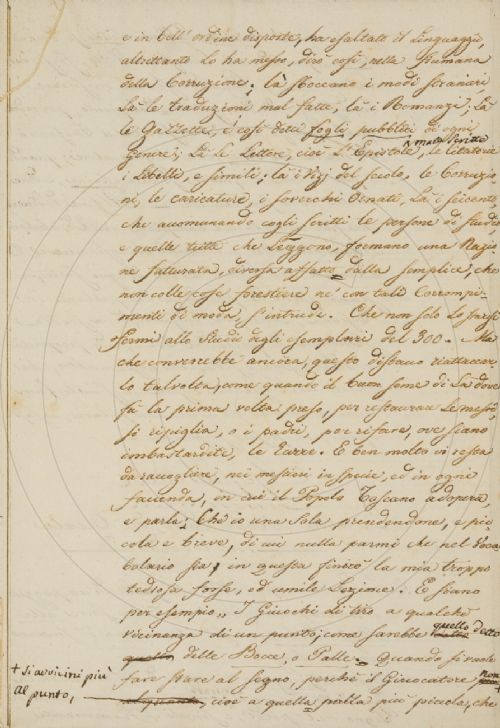 e in bell' ordine disposte, ha esaltato il Linguaggio,
altrettanto lo ha messo, dirò così, nella
della Corruzione; là sboccano i modi stranieri,
là le traduzioni mal fatte, là i Romanzi, là
le Gazzette, i così detti fogli pubblici di ogni
genere; là le Lettere, cioè l' Epistole, male scritte le Oratorie
i Libelli, e simili; là i Vizj del secolo, le Corruzio
ni, le caricature, i soverchi Ornati, là i seicenti,
che accomunando cogli scritti le persone di studio
e quelle tutte che Leggono, formano una Nazio
ne fatturata, diversa affatto dalla semplice, che
non colle cose forestiere né con tali Corrompi-
menti di moda s' intrude. Che non solo lo farsi
fermi allo Studio degli esemplari del 300. Ma
che converrebbe ancora, questo disteso riattaccar
lo talvolta, come quando il buon seme di Là dove
fù la prima volta preso, per restaurar le messi,
si ripiglia, o i padri, per rifare, ove siano
imbastardite, le Razze. E ben molto vi resta
da raccogliere, nei mestieri in specie, ed in ogni
facienda, in cui il Popolo Toscano adopera,
e parla. Ché io una Sola prendendone, e pic
cola e breve, di cui nulla parmi che nel Voca
bolario sia, in questa finirò la mia troppo
tediosa forse, ed umile Lezione. E siano
per esempio, I Giuochi di tiro a qualche
vicinanza di un punto; come sarebbe quello detto
delle Bocce, o Palle. Quando si vuole
fare stare al segno, perché il Giuocatore non
+ si avvicini più
al punto, cioè a quella palla più piccola, che